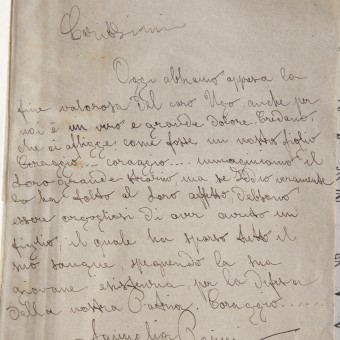 Carissimi
Oggi abbiamo appreso la
fine valorosa del caro Ugo, anche per
noi è un vero e grande dolore. Credano,
che ci affligge come fosse un nostro figlio
Coraggio.... coraggio.... immaginiamo il
loro grande strazio, ma se Iddio veramente
lo ha tolto al loro affetto, debbono
essere orgogliosi di aver avuto un
figlio, il quale ha sparso tutto il
suo sangue, spegnendo la sua
giovane esistenza, per la difesa
della nostra Patria. Coraggio......